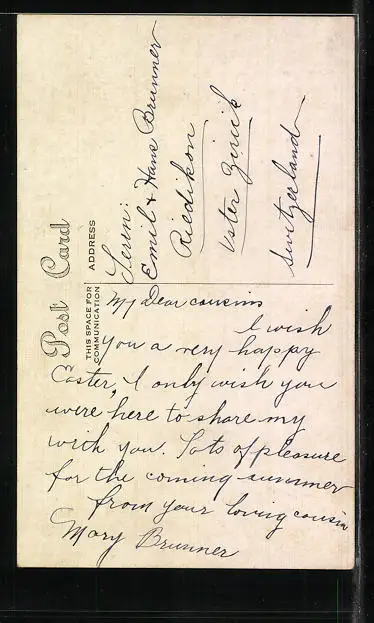 Post Card
THIS SPACE FOR COMMUNICATION
ADDRESS
My Dear cousins
I wish
you a very happy
Easter, I only wish you
were here to share my
with you. Lots of pleasure
for the coming summer
from your loving cousin
Mary Brunner
Emil & Hans Brunner
Riedikon
Uster Zürick
Switzerland